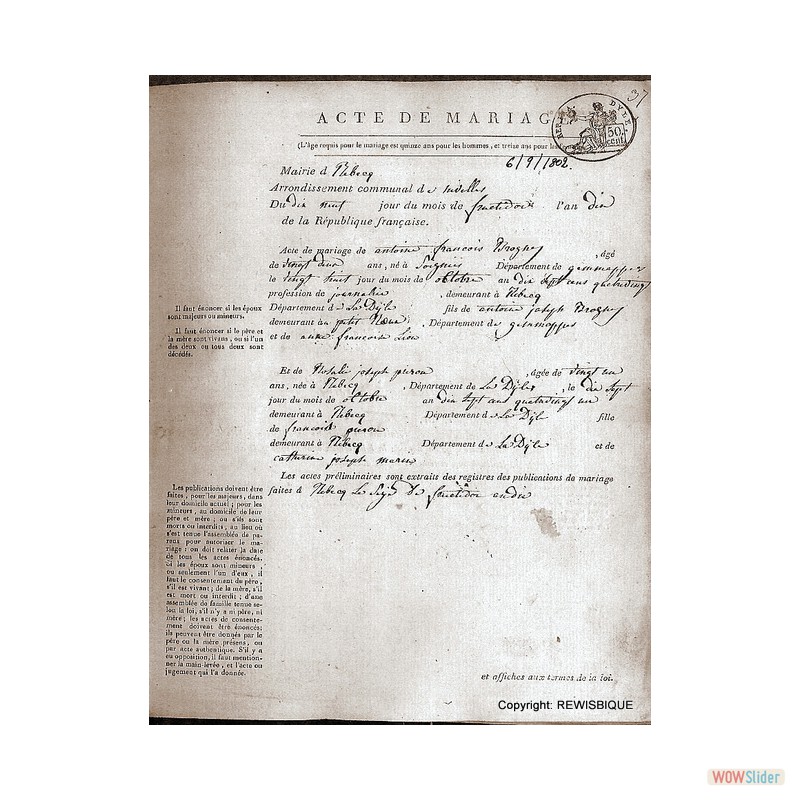 37
ACTE DE MARIAGE
REP. FRA. DYLE
50. cent.
(L'âge requis pour le mariage est quinze ans pour les hommes, et treize ans pour les
6/9/1802.
Mairie d Rebecq
Arrondissement communal de nivelles
Du dix neuf jour du mois de fructidor l'an dix
de la République française.
Acte de mariage de antoine francois Brogniez , âgé
de vingt deux ans, né à Soignies Département de gemmappes
le vingt huit jour du mois de octobre an dix sept cens quatrevingt
profession de journalier , demeurant à Rebecq
Département de La Dyle fils de antoine joseph Brogniez
demeurant à petit Rœux , Département de gemmappes
et de anne francoise Lion
Il faut énoncer si les époux
sont majeurs ou mineurs.
Il faut énoncer si le père et
la mère sont vivans, ou si l'un
des deux ou tous deux sont
décédés.
Et de Rosalie joseph pieron , âgée de vingt un
ans, née à Rebecq , Département de La Dyle , le dix sept
jour du mois de octobre an dix sept cens quatrevingt un
demeurant à Rebecq Département de La Dyle fille
de francois pieron
demeurant à Rebecq Département de La Dyle et de
catherine joseph
Les actes préliminaires sont extraits des registres des publications de mariage
faites à Rebecq Le Seize De fructidor an dix
Les publications doivent être
faites, pour les majeurs, dans
leur domicile actuel; pour les
mineurs, au domicile de leur
père et mère; ou s'ils sont
morts ou interdits, au lieu où
s'est tenue l'assemblée de pa-
rens pour autoriser le ma-
riage: on doit relater la date
de tous les actes énoncés.
Si les époux sont mineurs,
ou seulement l'un d'eux, il
faut le consentement du père,
s'il est vivant; de la mère, s'il
est mort ou interdit; d'une
assemblée de famille tenue se-
lon la loi, s'il n'y a ni père, ni
mère; les actes de consente-
ment doivent être énoncés;
ils peuvent être donnés par le
père ou la mère présens, ou
par acte authentique. S'il y a
eu opposition, il faut mention-
ner la main-levée, et l'acte ou
jugement qui l'a donnée.
et affiches aux termes de la loi.
Copyright: REWISBIQUE
WOWSlider